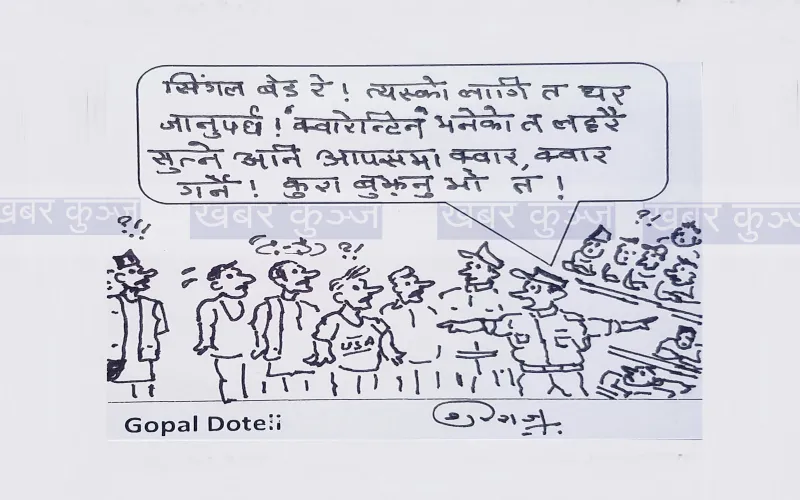 सिंगल बेड रे! त्यस्को लागि त घर
जानुपर्छ! 'क्वारेन्टिन' भनेको त लहरै
सुत्ने अनि आपसमा क्वार, क्वार
गर्ने! कुरा बुझ्नु भो त!
खबर कुञ्ज खबर कुञ्ज खबर कुञ्ज खबर कुञ्ज
?!!
!!
?!
?!
USA
Gopal Doteli